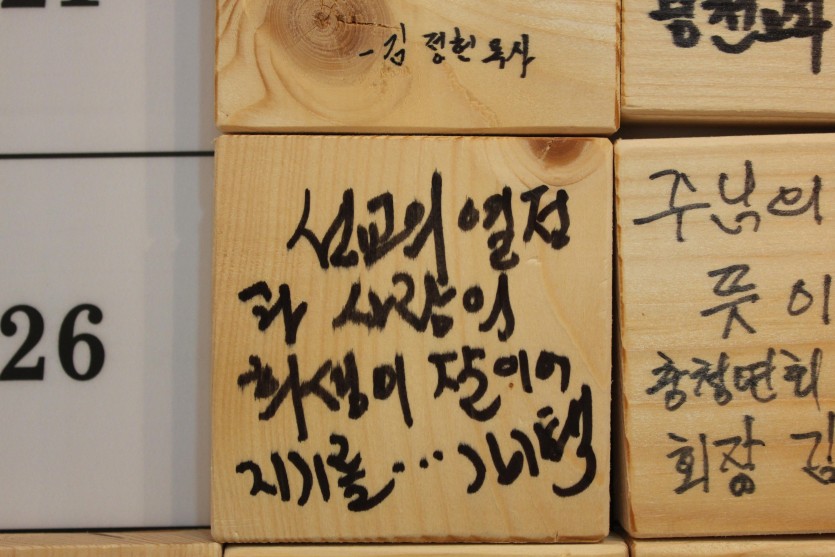 - 김 정헌 목사
26
선교의 열정
과 사랑의
희생이 잘 이어
지기를...
주님의
뜻이
충청연회
회장 김